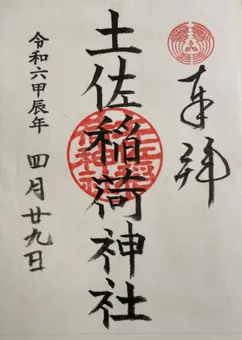 奉拜
土佐稲荷神社
令和六甲辰年 四月廿九日